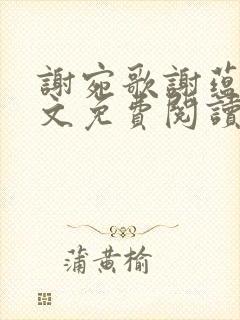 謝宛歌謝蘊
文免費閱讀
蒲黃榆